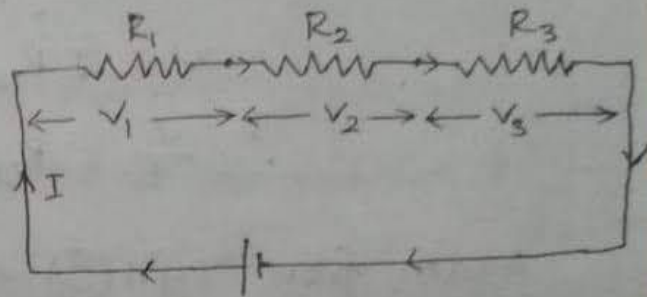 R₁ R₂ R₃
V₁ V₂ V₃
I